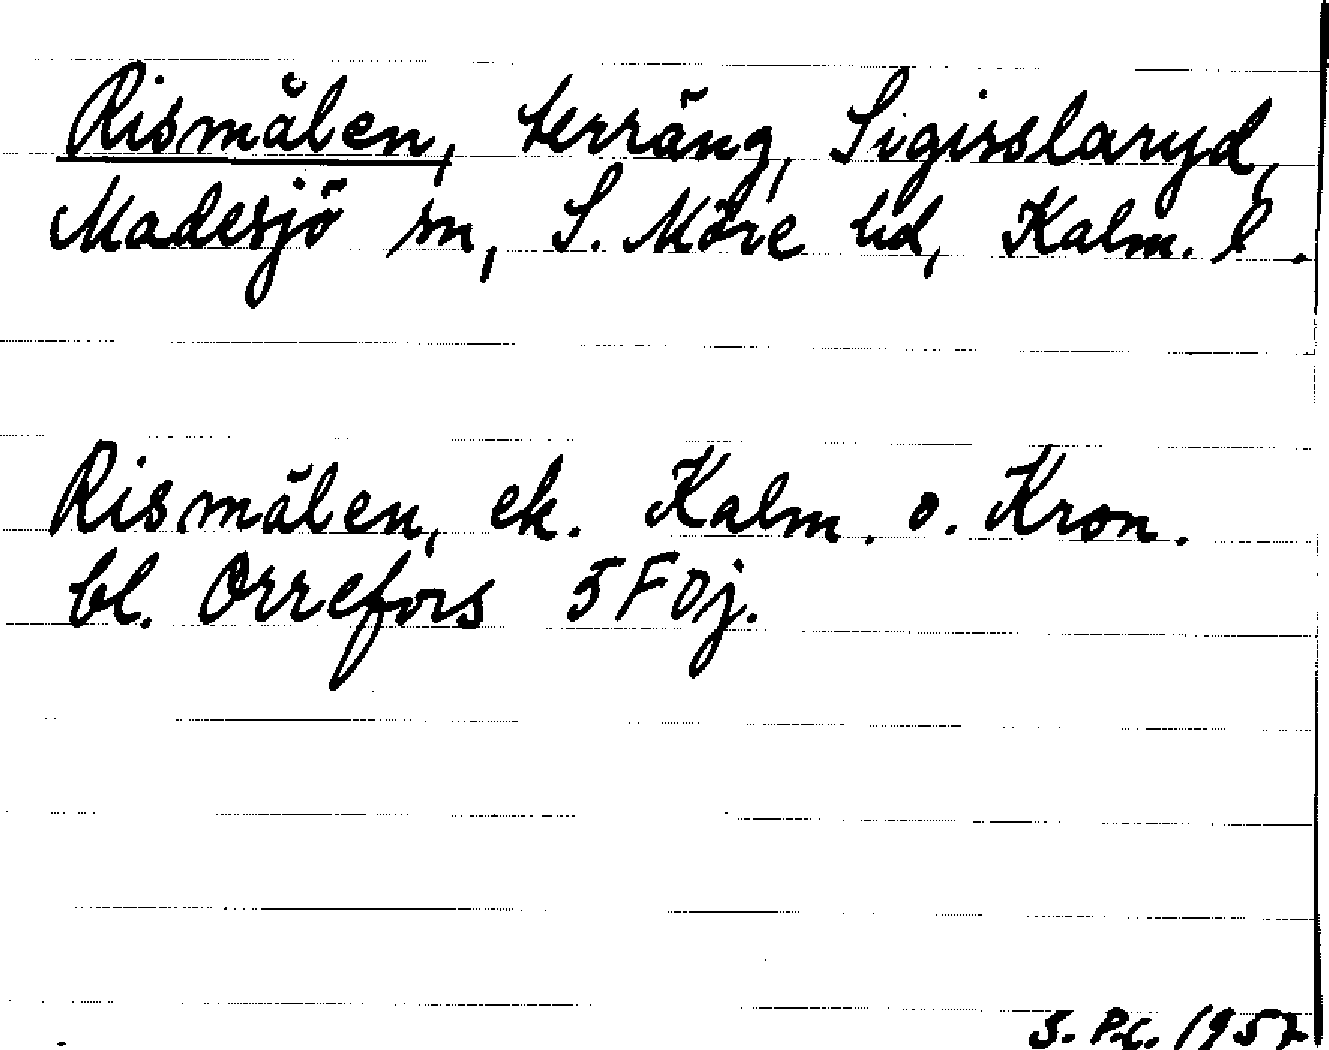 Rismålen, terräng, Sigisslaryd,
Madesjö sn, S. Möre hd, Kalm. l.
Rismålen, ek. Kalm. o. Kron.
bl. Orrefors 5F0j.
S. P-c. 1957